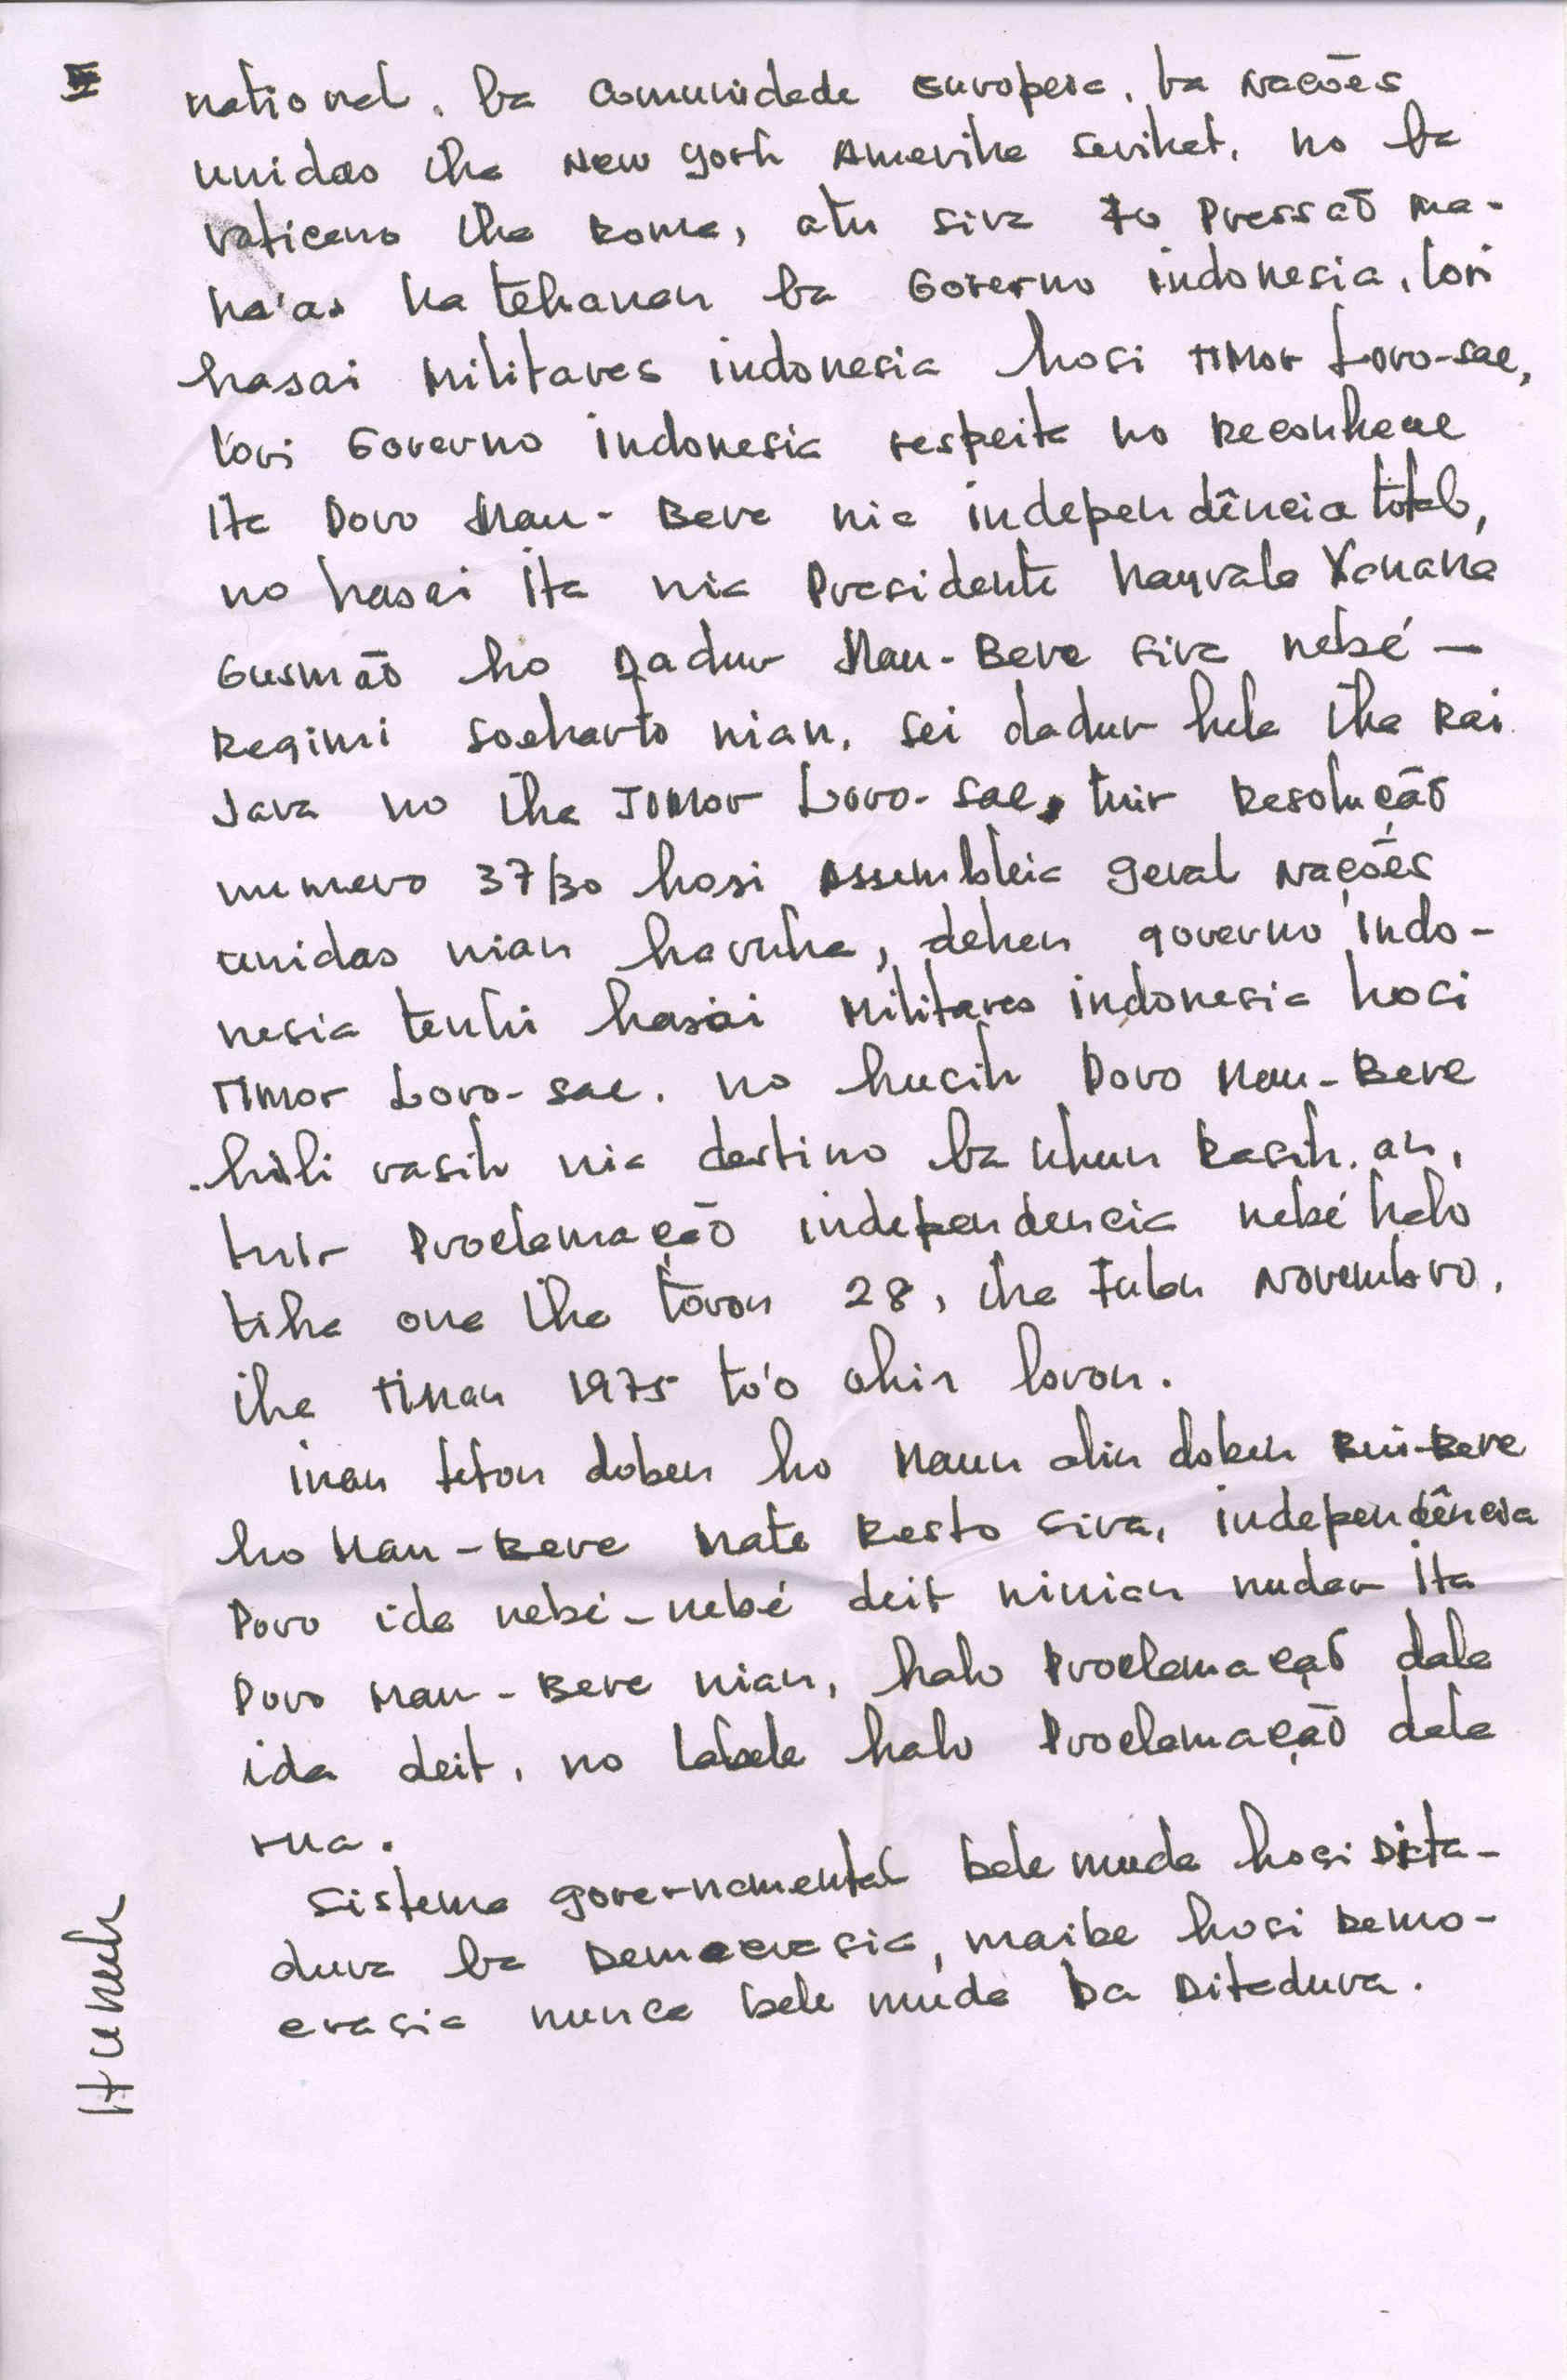 national, ba comunidade Europeia, ba Nações
unidas iha New York Amerika serikat, no ba
vaticano iha Roma, atu sira fo Pressaõ ma-
ka'as ka tékanan ba Governo indonesia, lori
hasai Militares indonesia hosi TIMOR Loro-sae,
lori Governo indonesia respeita no Reconhece
Ita Povo Mau-Bere nia independência total,
no hasai Ita nia Presidente kayrala Xanana
Gusmaõ ho Dadur Mau-Bere sira nebé -
Regimi Soeharto nian, sei dadur hela iha Rai
Java no iha TIMOR Loro-sae, tuir Resoluçaõ
numero 37/30 hosi Assembleia geral Nações
unidas nian haruka, dehen governo indo-
nesia tenki hasai Militares indonesia hosi
TIMOR Loro-sae. no husik Povo Mau-Bere
hili rasik nia destino ba Ukun Rasik. an,
tuir Proclamaçaõ independencia nebé halo
tiha ona iha loron 28, iha Fulan Novembro,
iha TINan 1975 to'o ohin loron.
inan feton doben ho Maun alin doben Bui-Bere
ho Mau-Bere Mate Resto sira, independência
Povo ida nebé-nebé deit ninian nudar Ita
Povo Mau-Bere nian, halo Proclamaçaõ dala
ida deit, no labele halo Proclamaçaõ dala
rua.
Sistema governamental bele muda hosi Dita-
dura ba Democrasia, maibe hosi Demo-
crasia nunca bele muda ba Ditadura.